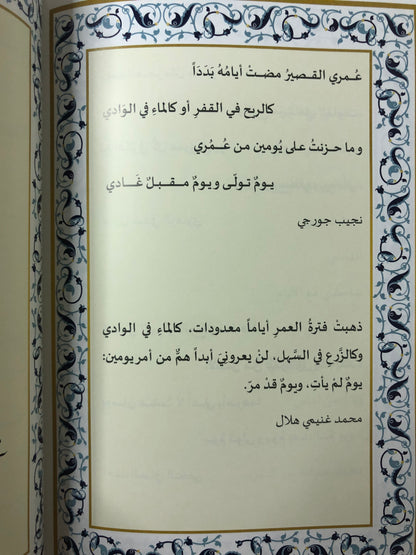 عُـمري القـصيرُ مضـتْ أيامُهُ بَدَدَاً
كالريح في القفرِ أو كالماءِ في الوَادي
وما حزنتُ على يُومين من عُـمْري
يـومٌ تـولّى ويـومٌ مـقـبلٌ غَـادي
نجيب جورجي
ذهبتْ فترةُ العمرِ أياماً معدودات، كالماءِ في الوادي
وكالزَّرعِ في السَّهل، لنْ يعرونيَ أبداً همٌّ من أمر يومين:
يومٌ لمْ يأتِ، ويومٌ قدْ مرّ.
محمد غنيمي هلال